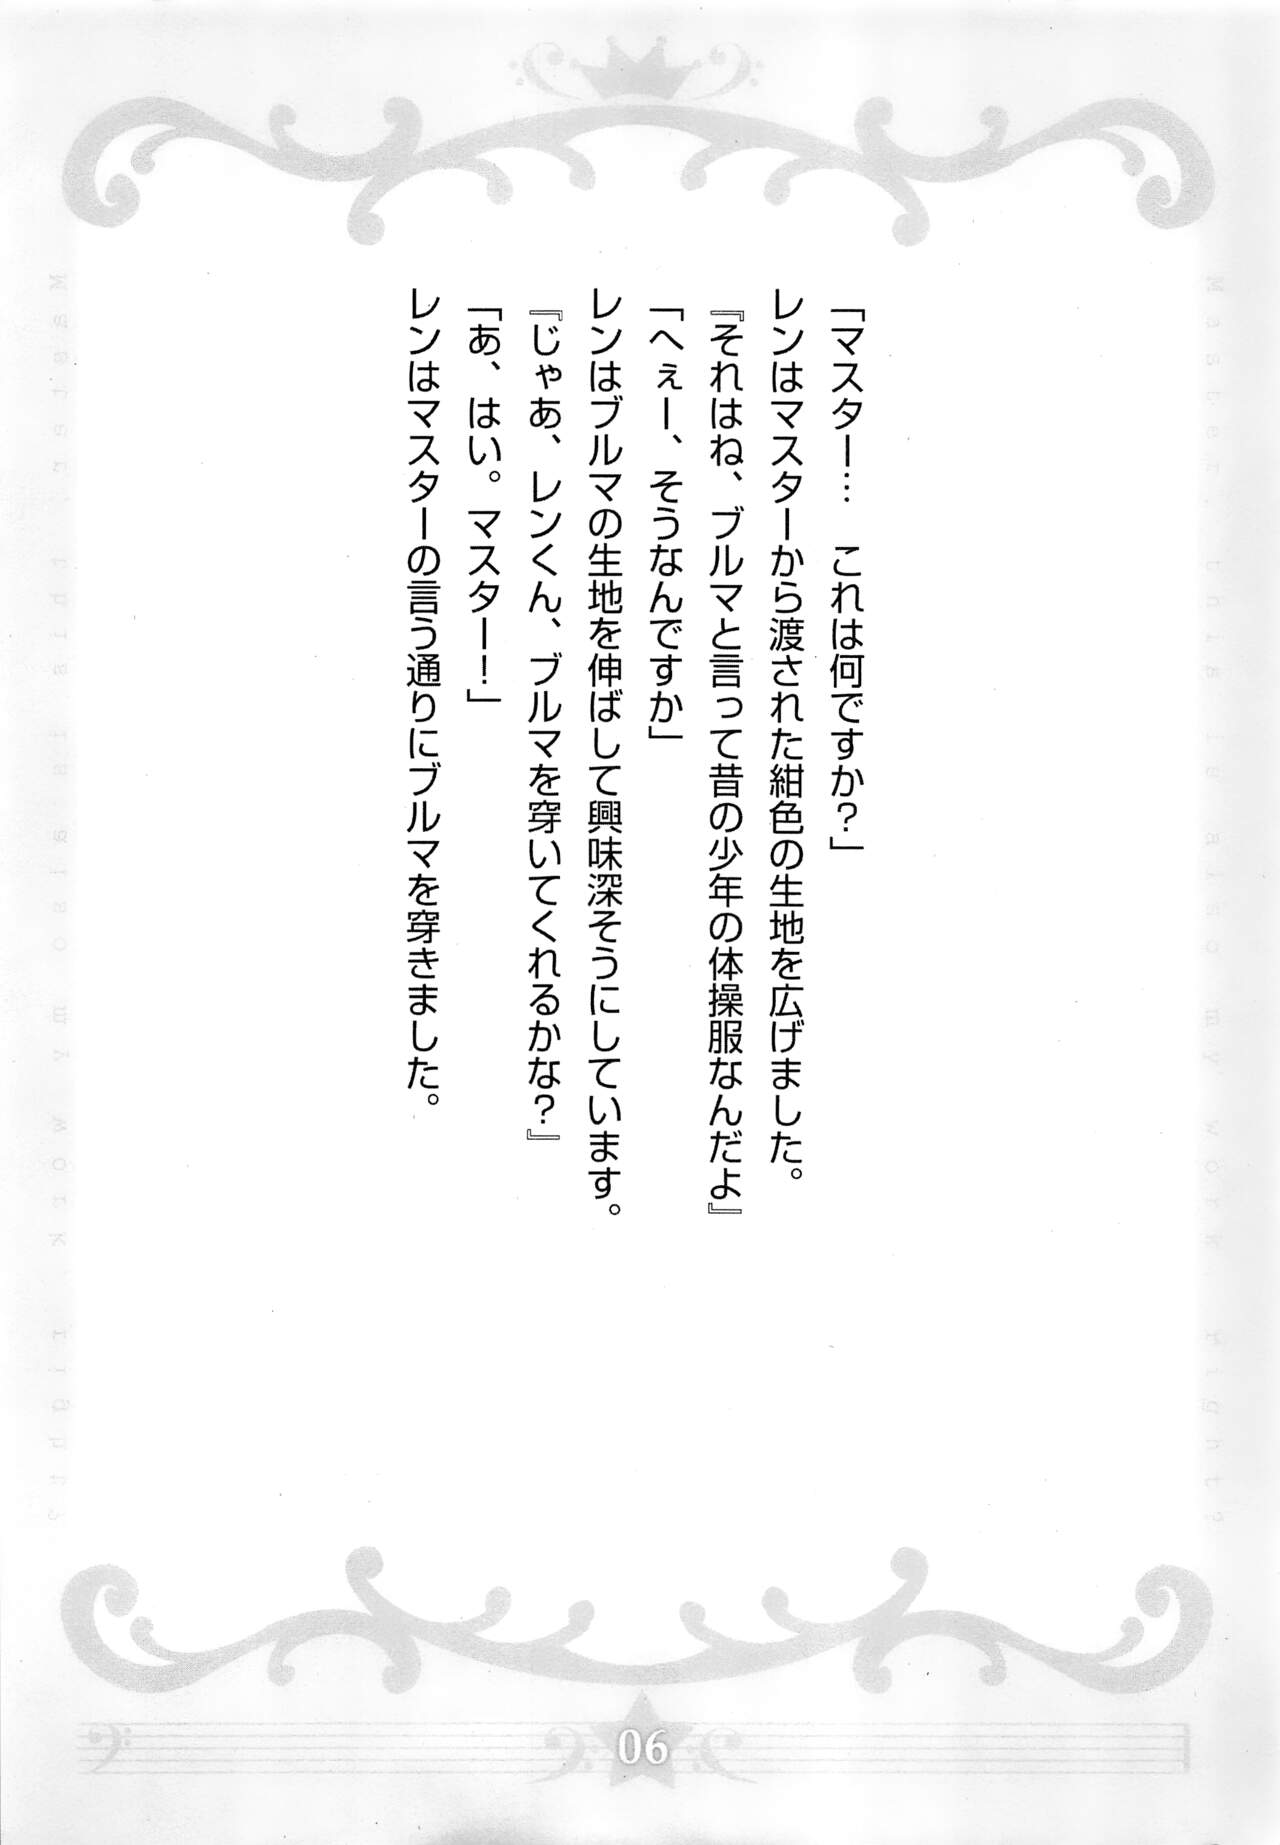 「マスター…　これは何ですか？」
レンはマスターから渡された紺色の生地を広げました。
『それはね、ブルマと言って昔の少年の体操服なんだよ』
「へぇー、そうなんですか」
レンはブルマの生地を伸ばして興味深そうにしています。
『じゃあ、レンくん、ブルマを穿いてくれるかな？』
「あ、はい。マスター！」
レンはマスターの言う通りにブルマを穿きました。
Master, this is also my work, right?
Master, this is also my work, right?
06